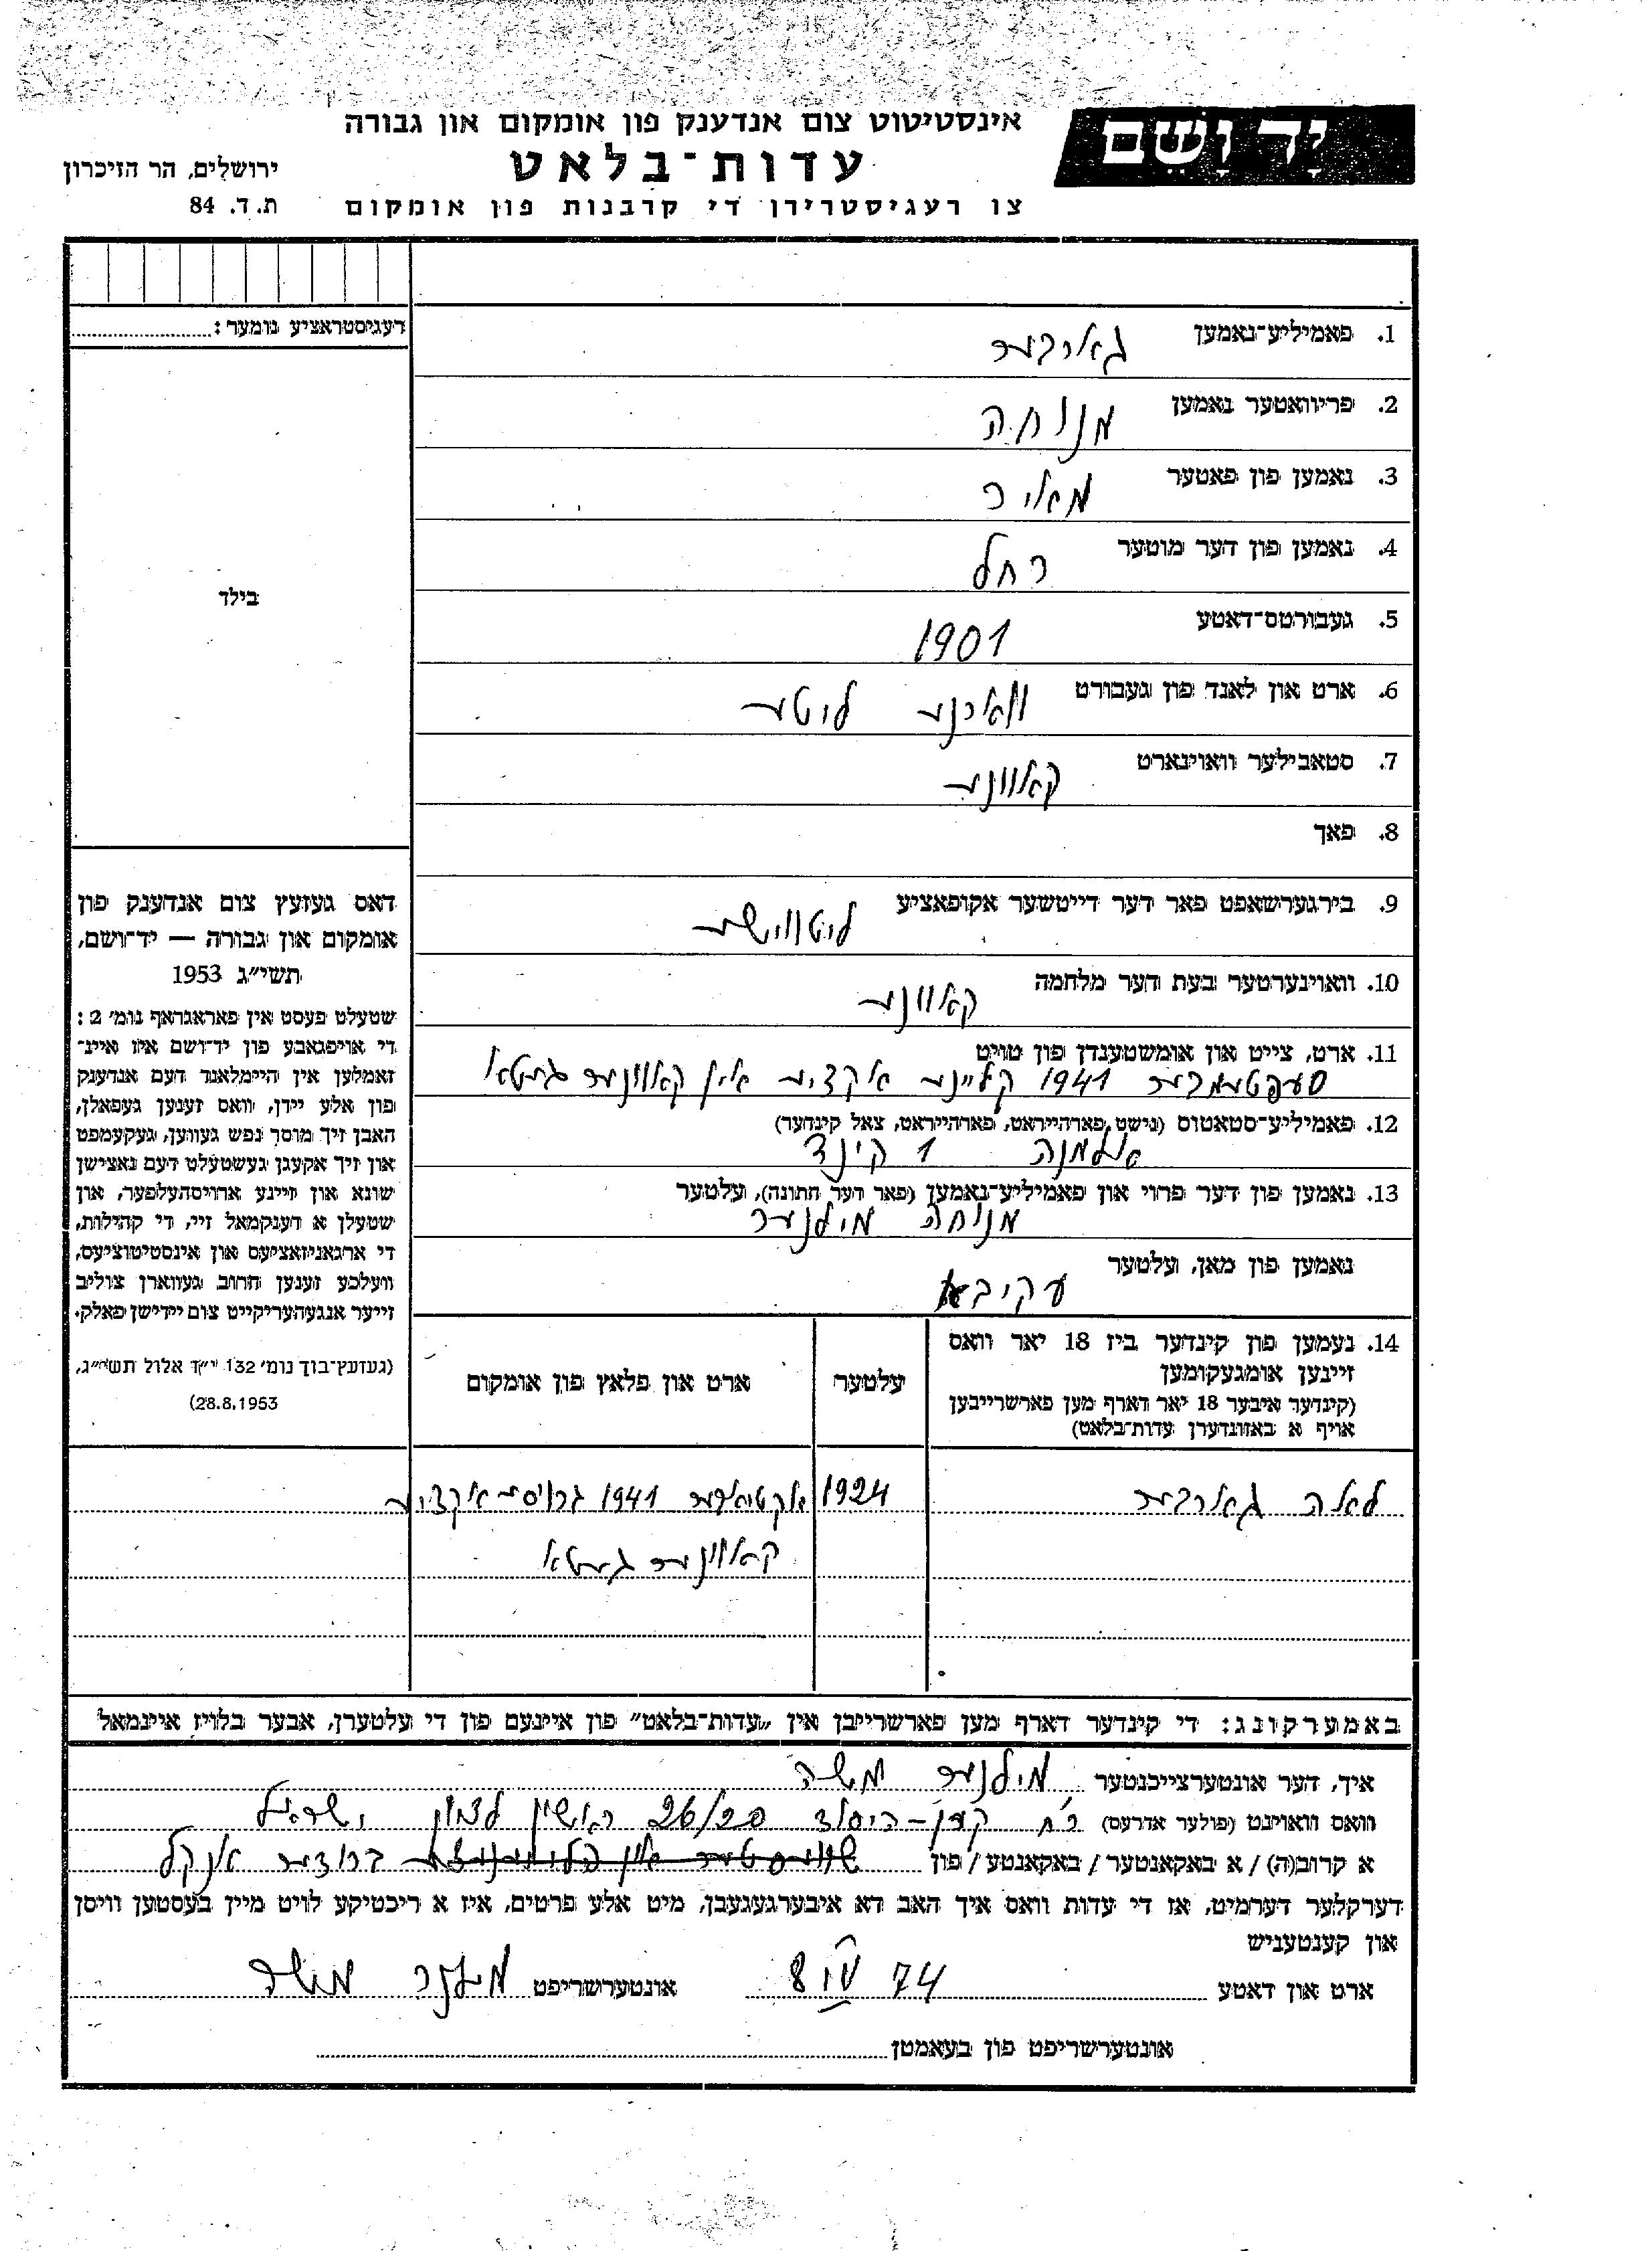 יד ושם
אינסטיטוט צום אנדענק פון אומקום און גבורה
עדות־בלאט
צו רעגיסטרירן די קרבנות פון אומקום
ירושלים, הר הזיכרון
ת. ד. 84
רעגיסטראציע נומער:
בילד
1. פאמיליע־נאמען גארבער
2. פריוואטער נאמען מנוחה
3. נאמען פון פאטער מאיר
4. נאמען פון דער מוטער רחל
5. געבורטס־דאטע 1901
6. ארט און לאנד פון געבורט ווארנע ליטע
7. סטאבילער וווינארט קאוונע
8. פאך
9. בירגערשאפט פאר דער דייטשער אקופאציע ליטווישע
10. וווינערטער בעת דער מלחמה קאוונע
11. ארט, צייט און אומשטענדן פון טויט
סעפטעמבער 1941 קליינע אקציע אין קאוונער געטא
12. פאמיליע־סטאטוס (נישט פארהייראט, פארהייראט, צאל קינדער)
אלמנה 1 קינד
13. נאמען פון דער פרוי און פאמיליע־נאמען (פאר דער חתונה), עלטער
מנוחה מילנער
נאמען פון מאן, עלטער
עקיבא
דאס געזעץ צום אנדענק פון
אומקום און גבורה — יד־ושם,
תשי"ג 1953
שטעלט פעסט אין פאראגראף נומ' 2:
די אויפגאבע פון יד־ושם איז איינ־
זאמלען אין היימלאנד דעם אנדענק
פון אלע יידן, וואס זענען געפאלן,
האבן זיך מוסר נפש געווען, געקעמפט
און זיך אקעגן געשטעלט דעם נאצישן
שונא און זיינע ארויסהעלפער, און
שטעלן א דענקמאל זיי, די קהילות,
די ארגאניזאציעס און אינסטיטוציעס,
וועלכע זענען חרוב געווארן צוליב
זייער אנגעהעריקייט צום יידישן פאלק.
(געזעץ־בוך נומ' 132 י"ד אלול תשי"ג,
28.8.1953)
14. נעמען פון קינדער ביז 18 יאר וואס
זיינען אומגעקומען
(קינדער איבער 18 יאר דארף מען פארשרייבן
אויף א באזונדערן עדות־בלאט)
עלטער
ארט און פלאץ פון אומקום
לאה גארבער 1924 אקטאבער 1941 גרויסע אקציע
קאוונער געטא
באמערקונג: די קינדער דארף מען פארשרייבן אין "עדות־בלאט" פון איינעם פון די עלטערן, אבער בלויז איינמאל
איך, דער אונטערצייכנטער מילנער משה
וואס וווינט (פולער אדרעס) רח קרן-היסוד 26/20 ראשון לציון ישראל
א קרוב(ה) / א באקאנטער / באקאנטע / פון ברודער אנקל
דערקלער דערמיט, אז די עדות וואס איך האב דא איבערגעגעבן, מיט אלע פרטים, איז א ריכטיקע לויט מיין בעסטען וויסן
און קענטעניש
ארט און דאטע 8 IV 74 אונטערשריפט מילנר משה
אונטערשריפט פון בעאמטן